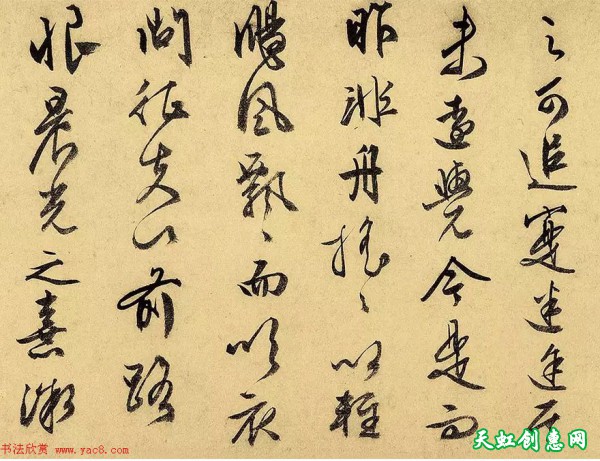 之可追寔迷途其
未遠覺今是而
昨非舟搖〻以輕
颺風飄〻而吹衣
問征夫以前路
恨晨光之熹微
书法欣赏
www.yac8.com
天虹创惠网